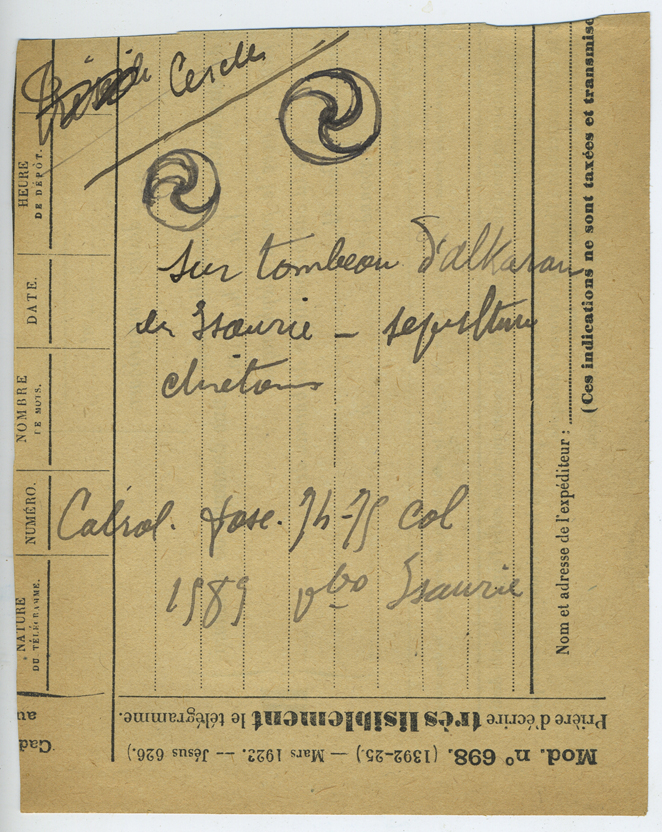 Cercle
sur tombeau d'alkaran
en Isaurie – sepulture
chretienne
Cabrol. fasc. 74-75 col
1989 vbo Isaurie
HEURE
DE DÉPÔT.
DATE.
NOMBRE
DE MOTS.
NUMÉRO.
NATURE
DU TÉLÉGRAMME.
(Ces indications ne sont taxées et transmise
Nom et adresse de l'expéditeur :
Prière d'écrire très lisiblement le télégramme.
Mod. n° 698. (1392-25.) — Mars 1923. -- Jésus 626.)
Cad
au